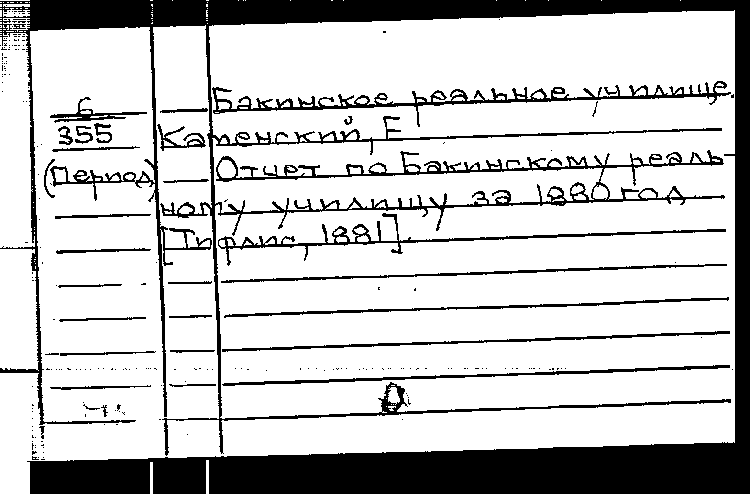 Бакинское реальное училище.
6
355
Каменский, Е
(Период)
Отчет по Бакинскому реаль-
ному училищу за 1880 год
[Тифлис, 1881].